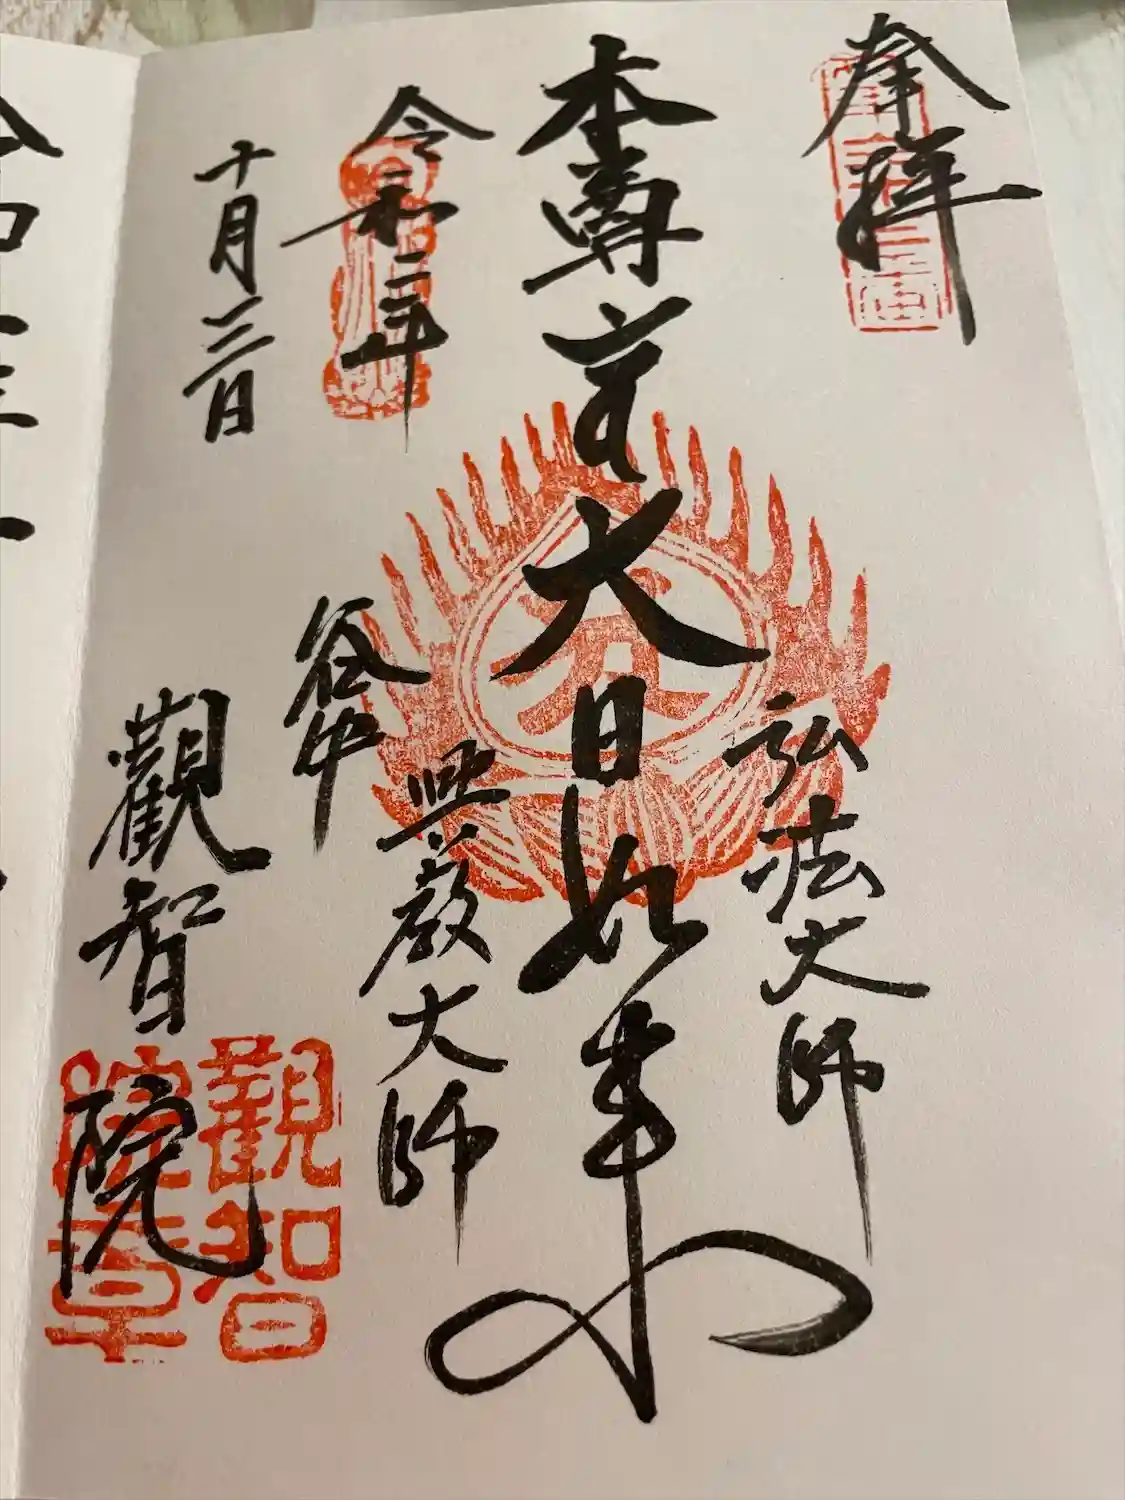 奉拝
弘法大師
本尊
大日如来
興教大師
令和三年
十月三日
谷中
觀智院
觀智
院章